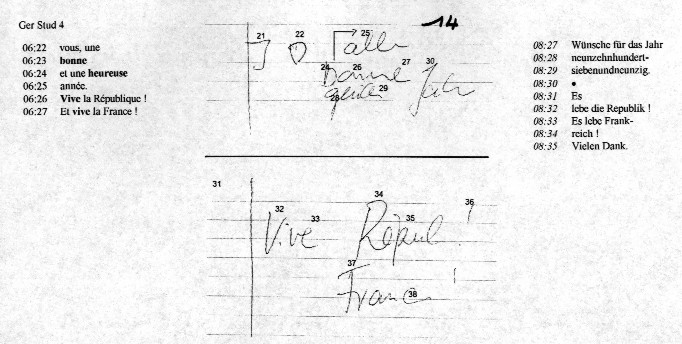 Ger Stud 4
14
06:22 vous, une
06:23 bonne
06:24 et une heureuse
06:25 année.
06:26 Vive la République !
06:27 Et vive la France !
21 22 25
24 26 27 30
28 29
Jahr
31
32 33 34 35 36
Vive Répub. !
37 38
France !
08:27 Wünsche für das Jahr
08:28 neunzehnhundert-
08:29 siebenundneunzig.
08:30 •
08:31 Es
08:32 lebe die Republik !
08:33 Es lebe Frank-
08:34 reich !
08:35 Vielen Dank.